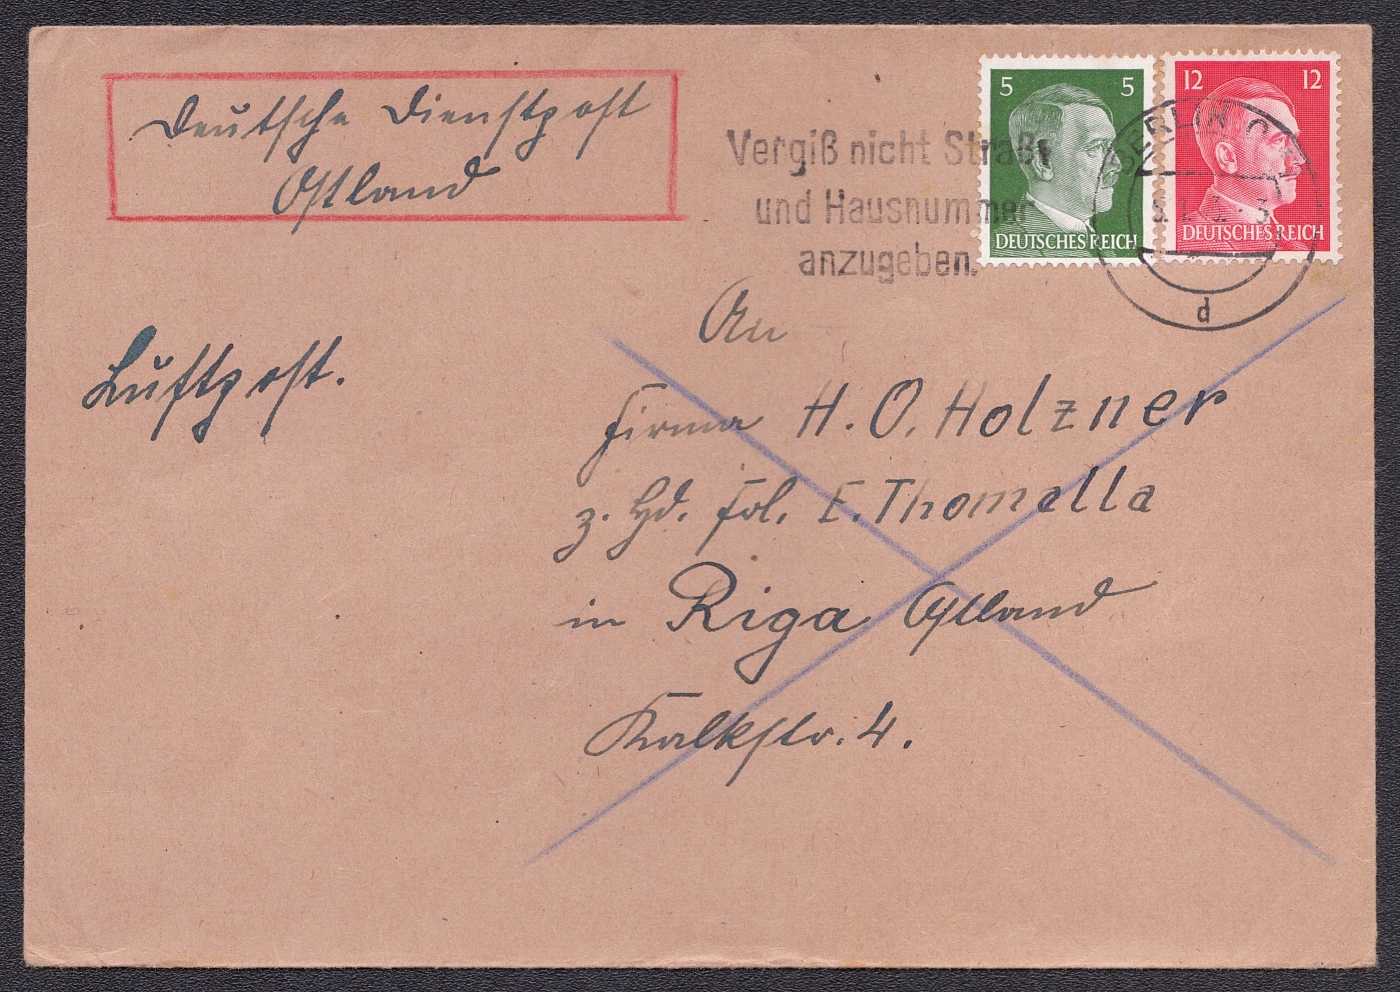 Deutsche Dienstpost
Ostland
5 5
DEUTSCHES REICH
12 12
DEUTSCHES REICH
Vergiß nicht Straße
und Hausnummer
anzugeben.
BERLIN
d
Luftpost.
An
Firma H. O. Holzner
z. Hd. Frl. E. Thomella
in Riga Ostland
Kalkstr. 4.